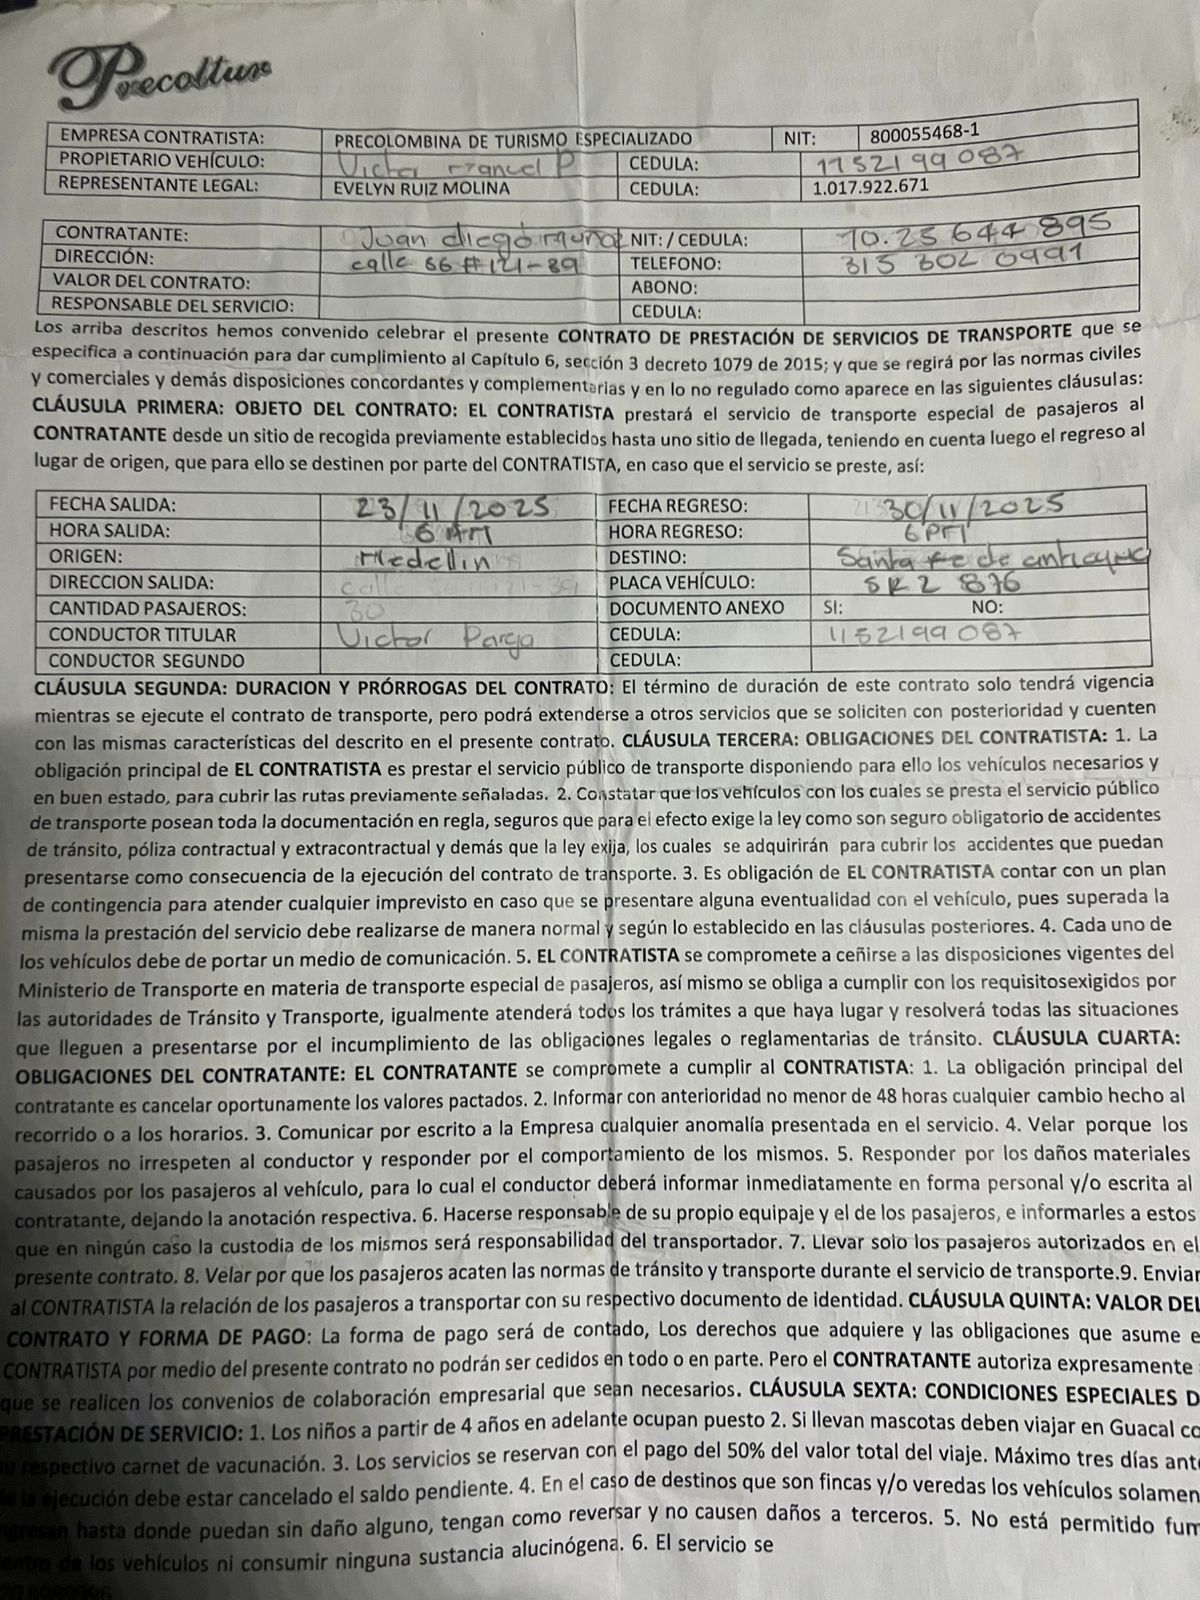 Precoltur
EMPRESA CONTRATISTA: PRECOLOMBINA DE TURISMO ESPECIALIZADO NIT: 800055468-1
PROPIETARIO VEHÍCULO: Victor Manuel P CEDULA: 1152199087
REPRESENTANTE LEGAL: EVELYN RUIZ MOLINA CEDULA: 1.017.922.671
CONTRATANTE: Juan diego muñoz NIT: / CEDULA: 10.25 644 895
DIRECCIÓN: calle 66 #121-89 TELEFONO: 315 302 0991
VALOR DEL CONTRATO: ABONO:
RESPONSABLE DEL SERVICIO: CEDULA:
Los arriba descritos hemos convenido celebrar el presente CONTRATO DE PRESTACIÓN DE SERVICIOS DE TRANSPORTE que se
especifica a continuación para dar cumplimiento al Capítulo 6, sección 3 decreto 1079 de 2015; y que se regirá por las normas civiles
y comerciales y demás disposiciones concordantes y complementarias y en lo no regulado como aparece en las siguientes cláusulas:
CLÁUSULA PRIMERA: OBJETO DEL CONTRATO: EL CONTRATISTA prestará el servicio de transporte especial de pasajeros al
CONTRATANTE desde un sitio de recogida previamente establecidos hasta uno sitio de llegada, teniendo en cuenta luego el regreso al
lugar de origen, que para ello se destinen por parte del CONTRATISTA, en caso que el servicio se preste, así:
FECHA SALIDA: 23/11/2025 FECHA REGRESO: 30/11/2025
HORA SALIDA: 6 AM HORA REGRESO: 6 PM
ORIGEN: Medellin DESTINO: Santa Fe de antioquia
DIRECCION SALIDA: calle PLACA VEHÍCULO: SKZ 876
CANTIDAD PASAJEROS: 30 DOCUMENTO ANEXO SI: NO:
CONDUCTOR TITULAR Victor Parga CEDULA: 1152199087
CONDUCTOR SEGUNDO CEDULA:
CLÁUSULA SEGUNDA: DURACION Y PRÓRROGAS DEL CONTRATO: El término de duración de este contrato solo tendrá vigencia
mientras se ejecute el contrato de transporte, pero podrá extenderse a otros servicios que se soliciten con posterioridad y cuenten
con las mismas características del descrito en el presente contrato. CLÁUSULA TERCERA: OBLIGACIONES DEL CONTRATISTA: 1. La
obligación principal de EL CONTRATISTA es prestar el servicio público de transporte disponiendo para ello los vehículos necesarios y
en buen estado, para cubrir las rutas previamente señaladas. 2. Constatar que los vehículos con los cuales se presta el servicio público
de transporte posean toda la documentación en regla, seguros que para el efecto exige la ley como son seguro obligatorio de accidentes
de tránsito, póliza contractual y extracontractual y demás que la ley exija, los cuales se adquirirán para cubrir los accidentes que puedan
presentarse como consecuencia de la ejecución del contrato de transporte. 3. Es obligación de EL CONTRATISTA contar con un plan
de contingencia para atender cualquier imprevisto en caso que se presentare alguna eventualidad con el vehículo, pues superada la
misma la prestación del servicio debe realizarse de manera normal y según lo establecido en las cláusulas posteriores. 4. Cada uno de
los vehículos debe de portar un medio de comunicación. 5. EL CONTRATISTA se compromete a ceñirse a las disposiciones vigentes del
Ministerio de Transporte en materia de transporte especial de pasajeros, así mismo se obliga a cumplir con los requisitosexigidos por
las autoridades de Tránsito y Transporte, igualmente atenderá todos los trámites a que haya lugar y resolverá todas las situaciones
que lleguen a presentarse por el incumplimiento de las obligaciones legales o reglamentarias de tránsito. CLÁUSULA CUARTA:
OBLIGACIONES DEL CONTRATANTE: EL CONTRATANTE se compromete a cumplir al CONTRATISTA: 1. La obligación principal del
contratante es cancelar oportunamente los valores pactados. 2. Informar con anterioridad no menor de 48 horas cualquier cambio hecho al
recorrido o a los horarios. 3. Comunicar por escrito a la Empresa cualquier anomalía presentada en el servicio. 4. Velar porque los
pasajeros no irrespeten al conductor y responder por el comportamiento de los mismos. 5. Responder por los daños materiales
causados por los pasajeros al vehículo, para lo cual el conductor deberá informar inmediatamente en forma personal y/o escrita al
contratante, dejando la anotación respectiva. 6. Hacerse responsable de su propio equipaje y el de los pasajeros, e informarles a estos
que en ningún caso la custodia de los mismos será responsabilidad del transportador. 7. Llevar solo los pasajeros autorizados en el
presente contrato. 8. Velar por que los pasajeros acaten las normas de tránsito y transporte durante el servicio de transporte.9. Enviar
al CONTRATISTA la relación de los pasajeros a transportar con su respectivo documento de identidad. CLÁUSULA QUINTA: VALOR DEL
CONTRATO Y FORMA DE PAGO: La forma de pago será de contado, Los derechos que adquiere y las obligaciones que asume e
CONTRATISTA por medio del presente contrato no podrán ser cedidos en todo o en parte. Pero el CONTRATANTE autoriza expresamente
que se realicen los convenios de colaboración empresarial que sean necesarios. CLÁUSULA SEXTA: CONDICIONES ESPECIALES D
PRESTACIÓN DE SERVICIO: 1. Los niños a partir de 4 años en adelante ocupan puesto 2. Si llevan mascotas deben viajar en Guacal co
su respectivo carnet de vacunación. 3. Los servicios se reservan con el pago del 50% del valor total del viaje. Máximo tres días ant
de la ejecución debe estar cancelado el saldo pendiente. 4. En el caso de destinos que son fincas y/o veredas los vehículos solamen
ingresan hasta donde puedan sin daño alguno, tengan como reversar y no causen daños a terceros. 5. No está permitido fum
dentro de los vehículos ni consumir ninguna sustancia alucinógena. 6. El servicio se